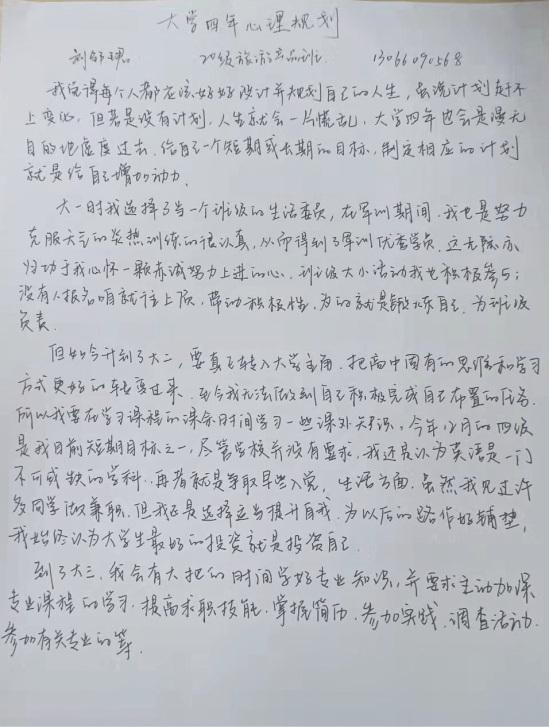 大学四年心理规划
20级旅游产品班 13066090568
我觉得每个人都应该好好设计并规划自己的人生，虽说计划赶不
上变化，但若是没有计划，人生就会一片慌乱，大学四年也会是漫无
目的地虚度过去。给自己一个短期或长期的目标，制定相应的计划
就是给自己增加动力。
大一时我选择了当一个班级的生活委员，在军训期间，我也是努力
克服天气的炎热训练的很认真，从而得到了军训优秀学员，这无际亦
归功于我心怀一颗赤诚努力上进的心，班级大小活动我也积极参与；
没有人报名咱就往上顶，带动积极性，为的就是锻炼自己，为班级
负责。
但如今升到了大二，要真正转入大学主角，把高中固有的思维和学习
方式更好的转变过来。至今我无法做到自己积极完成自己布置的任务。
所以我要在学习课程的课余时间学习一些课外知识，今年12月的四级
是我目前短期目标之一，尽管学校并没有要求，我还是认为英语是一门
不可或缺的学科，再者就是争取早些入党，生活方面，虽然我见过许
多同学做兼职，但我还是选择应当提升自我，为以后的路作好铺垫，
我始终认为大学生最好的投资就是投资自己
到了大三，我会有大把的时间学好专业知识，并要求主动加深
专业课程的学习，提高求职技能，掌握简历，参加实践、调查活动，
参加有关专业的等